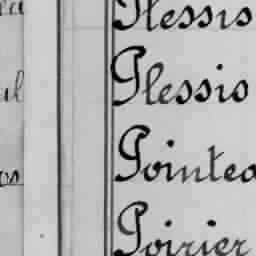 Plessis
Plessis
Pointea
Poirier